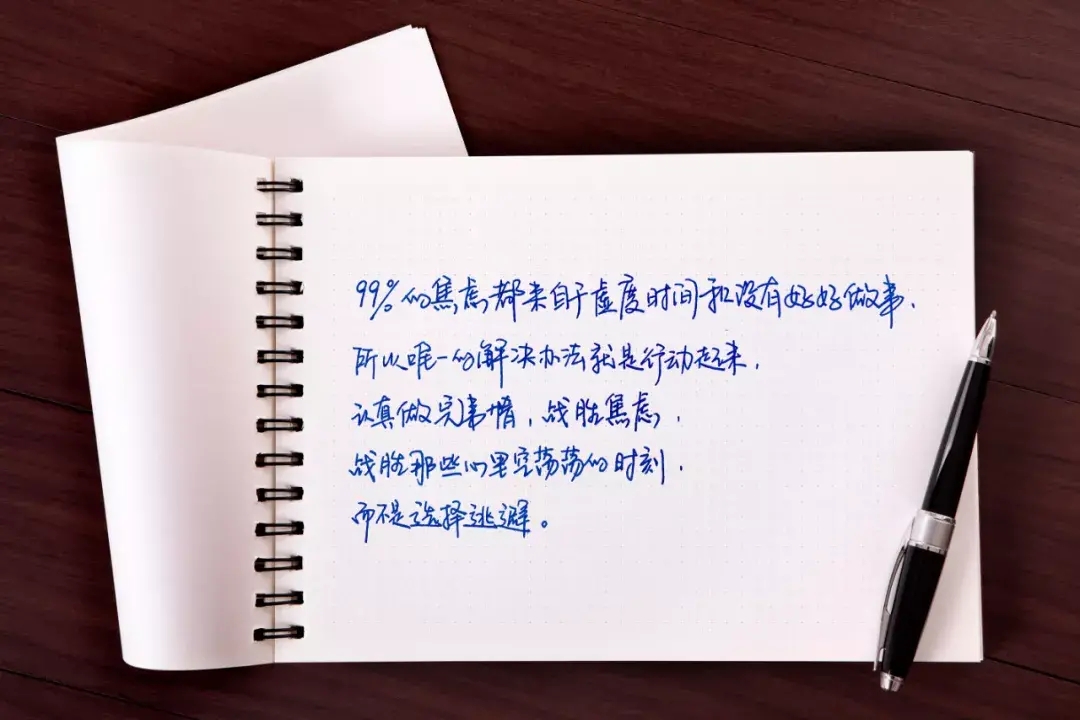 99%的焦虑都来自于虚度时间和没有好好做事，
所以唯一的解决办法就是行动起来，
认真做完事情，战胜焦虑，
战胜那些心里空荡荡的时刻，
而不是选择逃避。